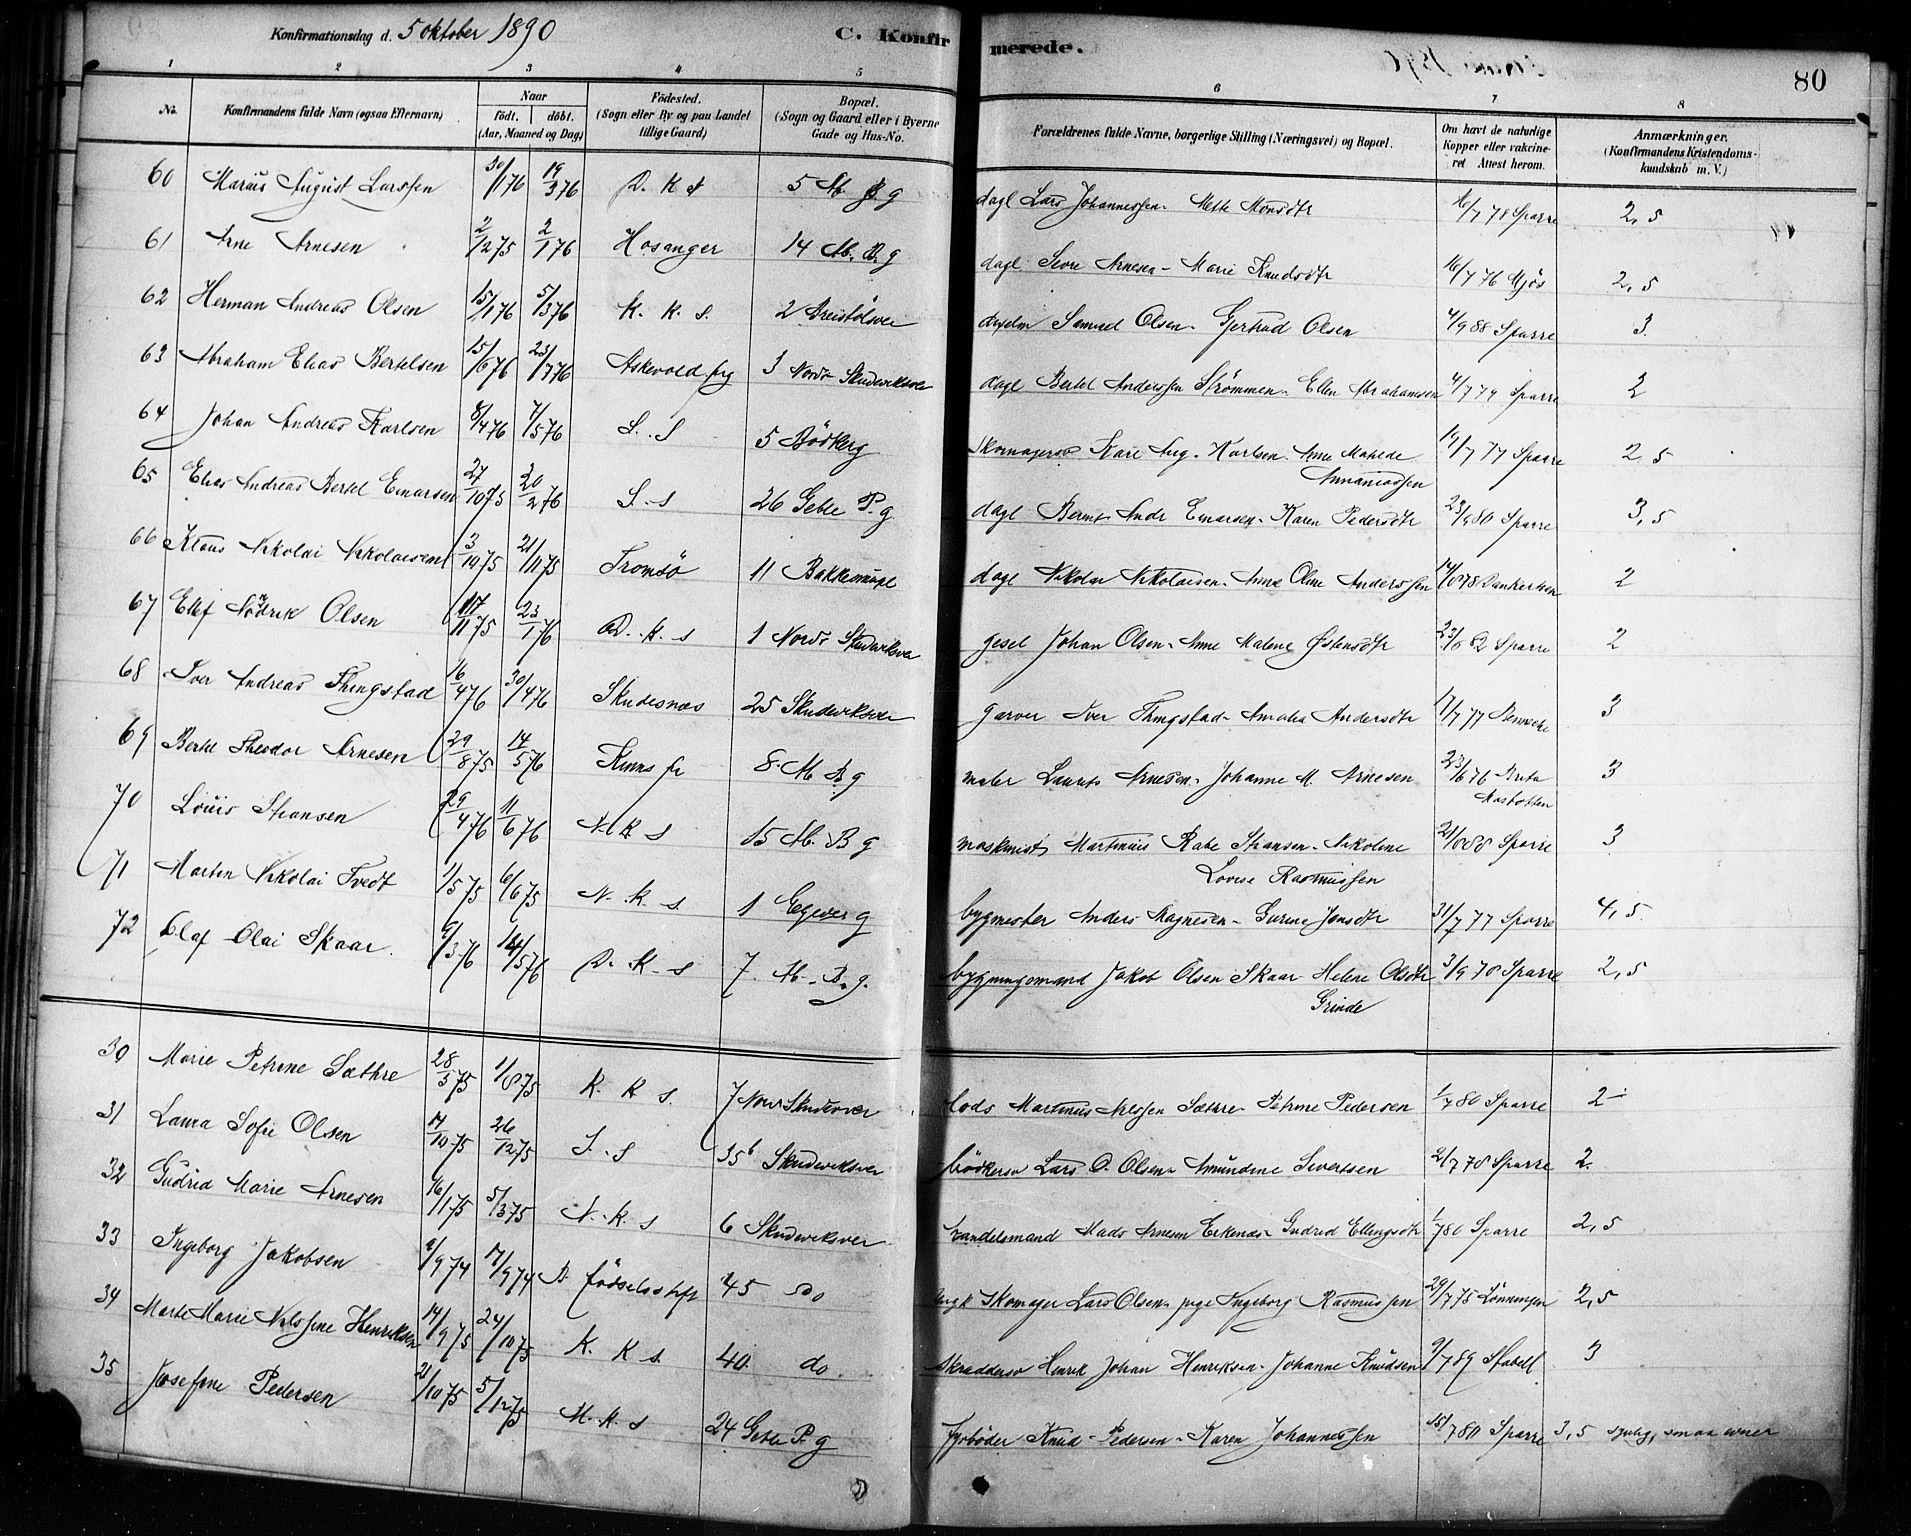 Konfirmationsdag d. 5 oktober 1890
C. Konfirmerede.
80
1 2 3 4 5 6 7 8
No. Konfirmandens fulde Navn (ogsaa Efternavn) Naar födt. döbt. (Aar, Maaned og Dag) Födested. (Sogn eller By og paa Landet tillige Gaard) Bopæl. (Sogn og Gaard eller i Byerne Gade og Hus-No. Forældrenes fulde Navne, borgerlige Stilling (Næringsvei) og Bopæl. Om havt de naturlige Kopper eller vakcineret. Attest herom. Anmærkninger. (Konfirmandens Kristendomskundskab m. V.)
60 Marius August Larssen 30/1 76 19/3 76 D. K s 5 M. B g dagl Lars Johannessen - Mette Monsdtr 16/7 78 Sparre 2,5
61 Arne Arnesen 2/12 75 2/1 76 Hosanger 14 M. B. g dagl Arnesen - Marie Knudsdtr 16/7 76 Mjös 2,5
62 Herman Andreas Olsen 15/1 76 5/3 76 K. K. s. 2 Samuel Olsen - Gjertrud Olsen 4/9 88 Sparre 3.
63 Abraham Elias Bertelsen 15/6 76 23/7 76 Askevold 3 Nordr Skudeviksvei dagl Bertel Anderssen Strömmen - Ellen Abrahamsen 4/7 79 Sparre 2
64 Johan Andreas Karlsen 8/4 76 7/5 76 S. S 5 Bödkerg Skomagersv Karl Aug. Karlsen - Anne Matilde Annaniassen 19/7 77 Sparre 2,5
65 Elias Andreas Bertel Einarsen 27/10 75 20/2 76 S. s 26 Geble P. g. dagl Bernt Andr Einarsen - Karen Pedersdtr 23/9 80 Sparre 3,5
66 Klaus Nikolai Nikolaisen 3/10 75 21/11 75 Tromsö 11 Bakkesmuget dagl Nikolai Nikolaisen - Anne Oline Anderssen 14/6 78 Dankertsen 2
67 Ellef Olsen 17/11 75 23/1 76 D. K. s 1 Nordr Skudeviksvei gesel Johan Olsen - Anne Malene Østensdtr 23/6 82 Sparre 2
68 Iver Andreas Thingstad 16/4 76 30/4 76 Skudesnæs 25 Skudeviksvei garver Iver Thingstad - Amalia Andersdtr 17/7 77 3
69 Bertel Theodor Arnesen 29/8 75 14/5 76 Kinns 8. M B g maler Laurits Arnesen - Johanne M. Arnesen 23/6 76 3
70 Louis Stransen 29/4 76 11/6 76 N. K s 15 M. B g maskinist Martinius Rabe Stransen - Nikoline Lovise Rasmussen 21/8 88 Sparre 3
71 Morten Nikolai Tvedt 1/5 75 6/6 75 N. K. s. 1 g bygmester Anders Magnesen - Gurine Jonsdtr 31/7 77 Sparre 4,5.
72 Olaf Olai Skaar. 6/3 76 14/5 76 D. K. s 7. M. B. g. bygningsmand Jakob Olsen Skaar Helene Olsdtr Grinde 3/9 78 Sparre 2,5
30 Marie Petrine Sæthre 28/3 75 1/8 75 K. K s. 7 Nor Skudevei lods Martinus Nilssen Sæthre - Petrine Pedersen 1/7 80 Sparre 2
31 Laura Sofie Olsen 17/10 75 26/12 75 S. s 35b Skudeviksvei bödkersv Lars O. Olsen - Amundine Sivertsen 2/7 78 Sparre 2.
32 Gudrid Marie Arnesen 16/1 75 5/3 75 N. K. s 6 Skudeviksvei handelsmand Mads Arnesen Eikenæs - Gudrid Ellingsdtr 1/7 80 Sparre 2,5
33 Ingeborg Jakobsen 6/9 74 17/9 74 B. födselsstift 45 do Skomager Lars Olsen - pige Ingeborg Rasmussen 29/7 75 Lönningen 2,5
34 Marte Marie Nilssine Henriksen 14/9 75 24/10 75 K. K s. 40. do skræddersv Henrik Johan Henriksen - Johanne Knudsen 9/7 89 Stabell 3
35 Josefine Pedersen 21/10 75 5/12 75 M. K. s 24 Geble P. g fyrböder Knud Pedersen - Karen Johannessen 15/7 80 Sparre 3,5 sygelig, smaa evner